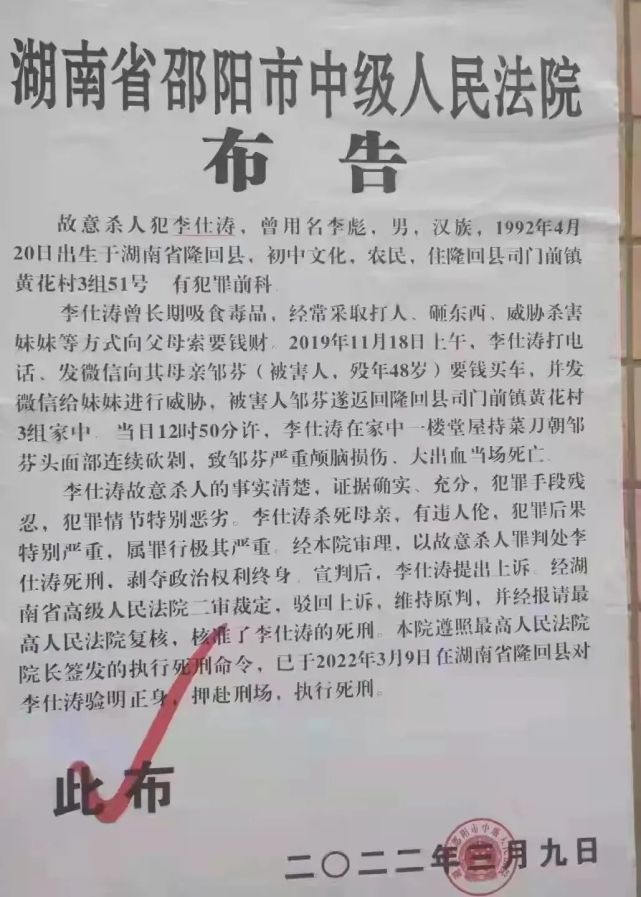 湖南省邵阳市中级人民法院
布 告
故意杀人犯李仕涛，曾用名李彪，男，汉族，1992年4月
20日出生于湖南省隆回县，初中文化，农民，住隆回县司门前镇
黄花村3组51号 有犯罪前科
李仕涛曾长期吸食毒品，经常采取打人、砸东西、威胁杀害
妹妹等方式向父母索要钱财 2019年11月18日上午，李仕涛打电
话、发微信向其母亲邹芬（被害人，殁年48岁）要钱买车，并发
微信给妹妹进行威胁，被害人邹芬遂返回隆回县司门前镇黄花村
3组家中 当日12时50分许，李仕涛在家中一楼堂屋持菜刀朝邹
芬头面部连续砍剁，致邹芬严重颅脑损伤、大出血当场死亡
李仕涛故意杀人的事实清楚，证据确实、充分，犯罪手段残
忍，犯罪情节特别恶劣。李仕涛杀死母亲，有违人伦，犯罪后果
特别严重，属罪行极其严重。经本院审理，以故意杀人罪判处李
仕涛死刑，剥夺政治权利终身 宣判后，李仕涛提出上诉 经湖
南省高级人民法院二审裁定，驳回上诉，维持原判，并经报请最
高人民法院复核，核准了李仕涛的死刑。本院遵照最高人民法院
院长签发的执行死刑命令，已于2022年3月9日在湖南省隆回县对
李仕涛验明正身，押赴刑场，执行死刑。
此布
二〇二二年三月九日